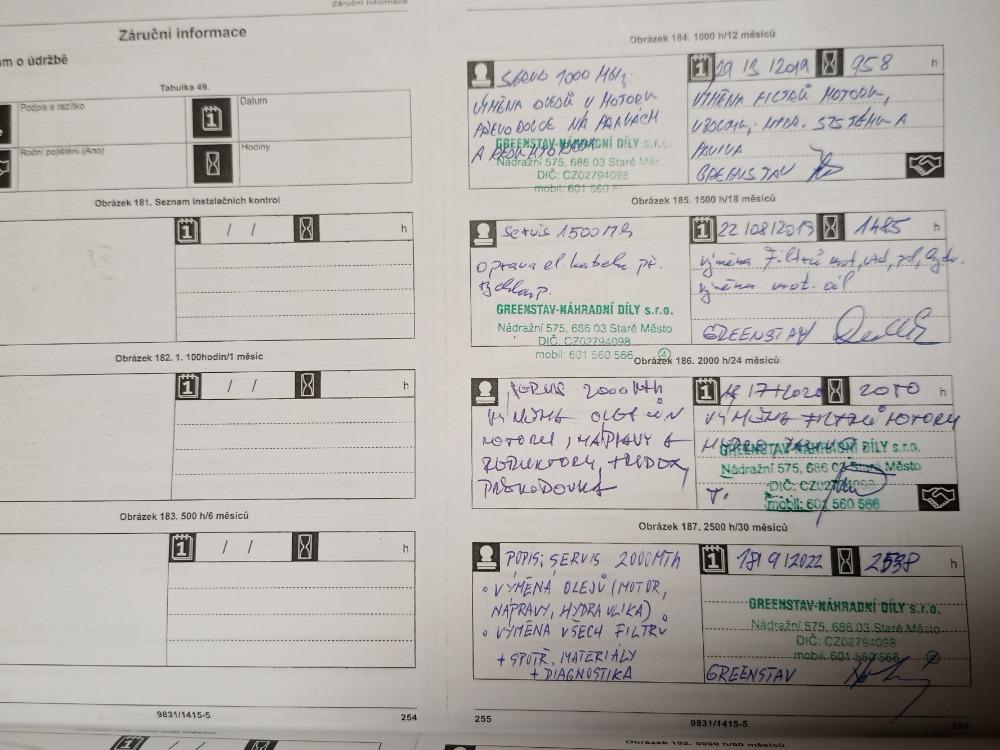 Záruční informace
m o údržbě
Tabulka 49.
Podpis a razítko
Datum
Roční pojištění (Ano)
Hodiny
Obrázek 181. Seznam instalačních kontrol
1 / / h
Obrázek 182. 1. 100hodin/1 měsíc
1 / / h
Obrázek 183. 500 h/6 měsíců
1 / / h
9831/1415-5
254
Záruční informace
Obrázek 184. 1000 h/12 měsíců
SERVIS 1000 MH;
1 2019 958 h
VÝMĚNA OLEJŮ V MOTORU
PŘEVODOVCE NA
VÝMĚNA FILTRŮ MOTORU,
SYSTÉMU A
PALIVA
GREENSTAV
GREENSTAV-NÁHRADNÍ DÍLY s.r.o.
Nádražní 575, 686 03 Staré Měs
DIČ: CZ02794098
mobil: 601 560 5
Obrázek 185. 1500 h/18 měsíců
Servis 1500 Mh
1 22 / 08 / 2019 1485 h
oprava el. kabelu př.
výměna Filtrů mot,
výměna mot. oil
GREENSTAV-NÁHRADNÍ DÍLY s.r.o.
Nádražní 575, 686 03 Staré Město
DIČ: CZ02794098
mobil: 601 560 566
GREENSTAV
Obrázek 186. 2000 h/24 měsíců
SERVIS 2000 Mth
1 2020 2010 h
VÝMĚNA OLEJŮ V
MOTORU, NÁPRAVY A
REDUKTORY,
VÝMĚNA FILTRŮ MOTORU
GREENSTAV-NÁHRADNÍ DÍLY s.r.o.
Nádražní 575, 686 03 Staré Město
DIČ: CZ02794098
mobil: 601 560 566
Obrázek 187. 2500 h/30 měsíců
POPIS: SERVIS 2000Mth
1 19 / 9 / 2022 2538 h
• VÝMĚNA OLEJŮ (MOTOR,
NÁPRAVY, HYDRAULIKA)
• VÝMĚNA VŠECH FILTRŮ
+ SPOTŘ. MATERIÁLY
+ DIAGNOSTIKA
GREENSTAV-NÁHRADNÍ DÍLY s.r.o.
Nádražní 575, 686 03 Staré Město
DIČ: CZ02794098
mobil: 601 560 566
GREENSTAV
255
9831/1415-5